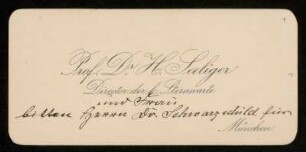 Prof. Dr. H. Seeliger
Director der k. Sternwarte
und Frau
bitten Herrn Dr. Schwarzschild für
München